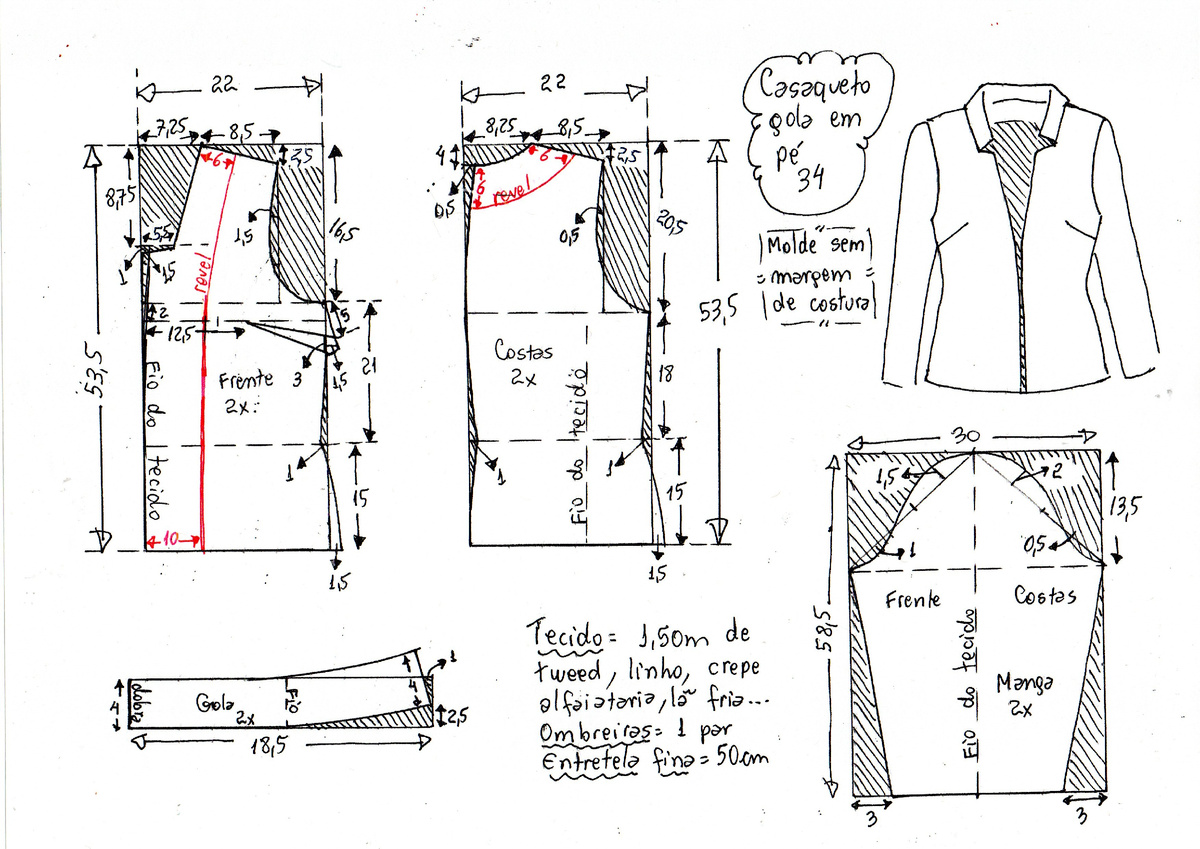 22
7,25
8,5
2,5
6
8,75
5,5
1
1,5
1,5
16,5
revel
2
12,5
5
53,5
Frente
2x
3
1,5
21
Fio do tecido
1
15
10
1,5
22
8,25
8,5
4
6
2,5
0,5
6
revel
0,5
20,5
53,5
Costas
2x
18
Fio do tecido
1
1
15
1,5
Casaqueto
gola em
pé
34
Molde sem
margem
de costura
30
1,5
2
13,5
1
0,5
Frente
Costas
58,5
Fio do tecido
Manga
2x
3
3
4
dobra
Gola
2x
Fio
4
1
2,5
18,5
Tecido = 1,50m de
tweed, linho, crepe
alfaiataria, lã fria...
Ombreiras = 1 par
Entretela fina = 50cm